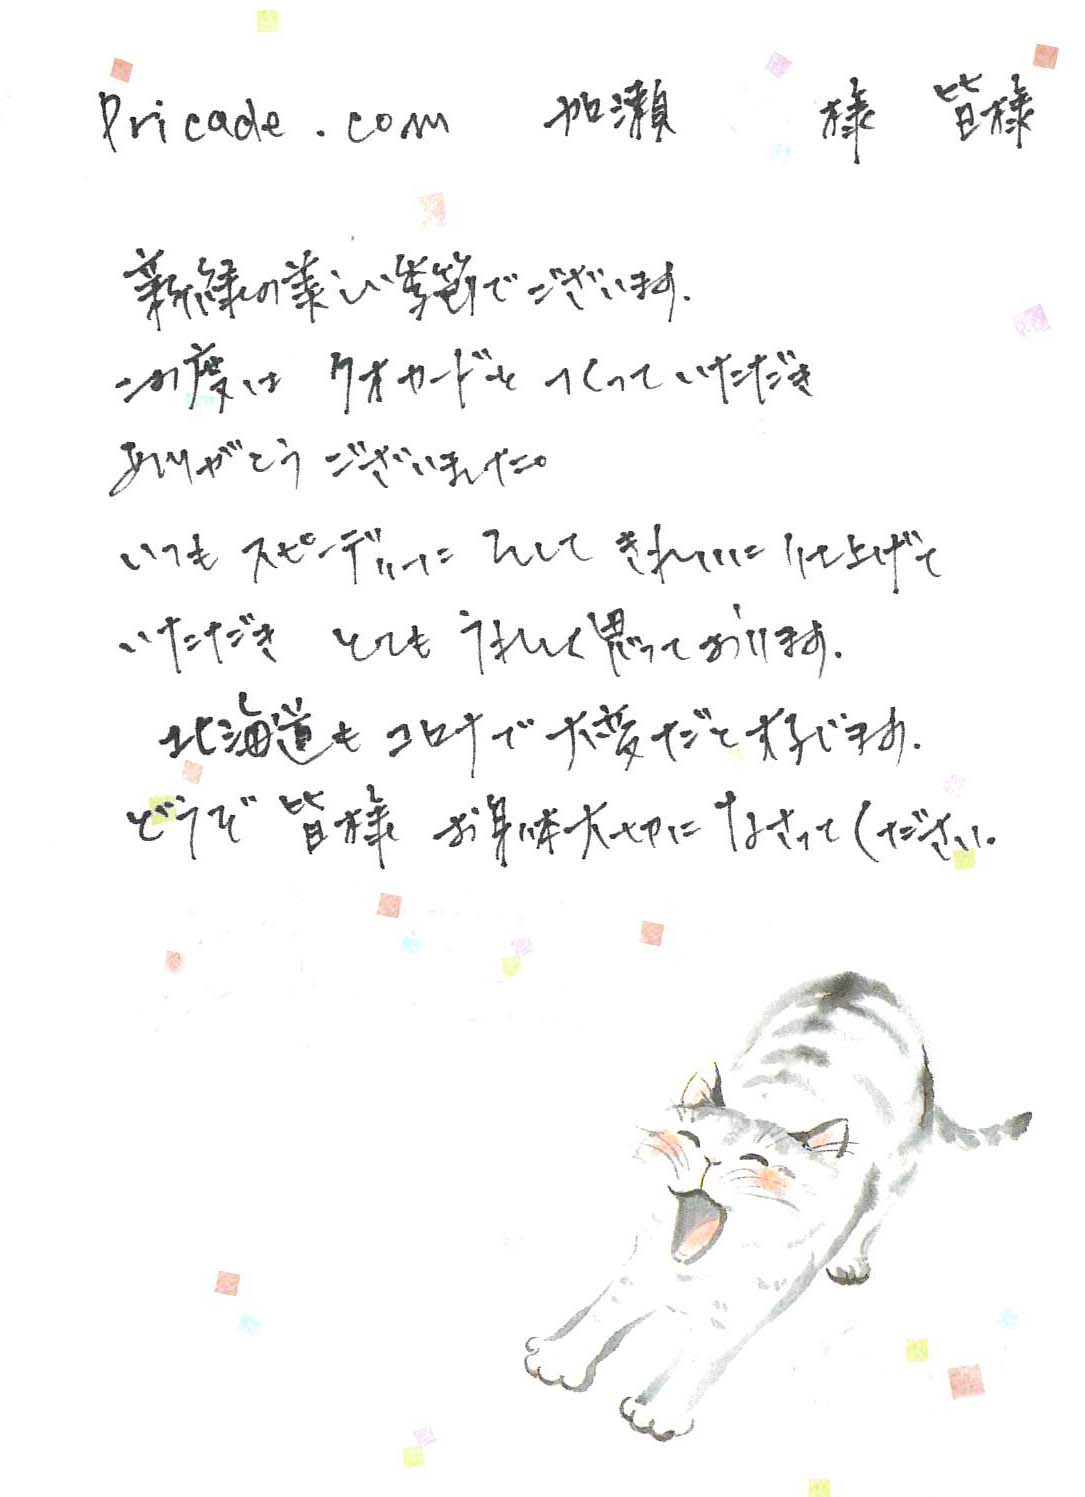 Pricade.com 加瀬 様 皆様
新緑の美しい季節でございます.
この度は クオカードを つくっていただき
ありがとう ございました。
いつも スピーディーに そして きれいに 仕上げて
いただき とても うれしく思っております.
北海道も コロナで 大変だと 存じます.
どうぞ 皆様 お身体大切に なさってください.